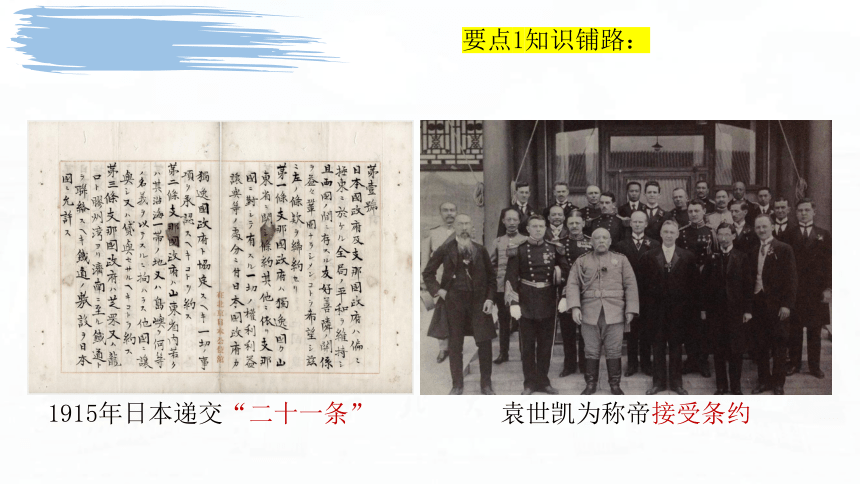 要点1知识铺路：
第壹號
日本國政府及支那國政府ハ偏ニ
極東ニ於ケル全局ノ平和ヲ維持シ
且両國ノ間ニ存スル友好善隣ノ關係
ヲ益々鞏固ナラシメンコトヲ希望シ茲
ニ左ノ條款ヲ締約セリ
第一條支那國政府ハ獨逸國カ山
東省ニ關シ條約其他ニ依リ支那
國ニ對シテ有スル一切ノ權利利益
讓與等ノ處分ニ付日本國政府カ
獨逸國政府ト協定スヘキ一切ノ事
項ヲ承認スヘキコトヲ約ス
第二條支那國政府ハ山東省内若ク
ハ其沿海一帶ノ地又ハ島嶼ヲ何等
ノ名義ヲ以テスルニ拘ハラス他國ニ讓
與シ又ハ貸與セサルヘキコトヲ約ス
第三條支那國政府ハ芝罘又ハ龍
口ト膠州湾ヨリ濟南ニ至ル鐵道ト
ヲ聯絡スヘキ鐵道ノ敷設ヲ日本
國ニ允許ス
1915年日本递交“二十一条”
袁世凯为称帝接受条约